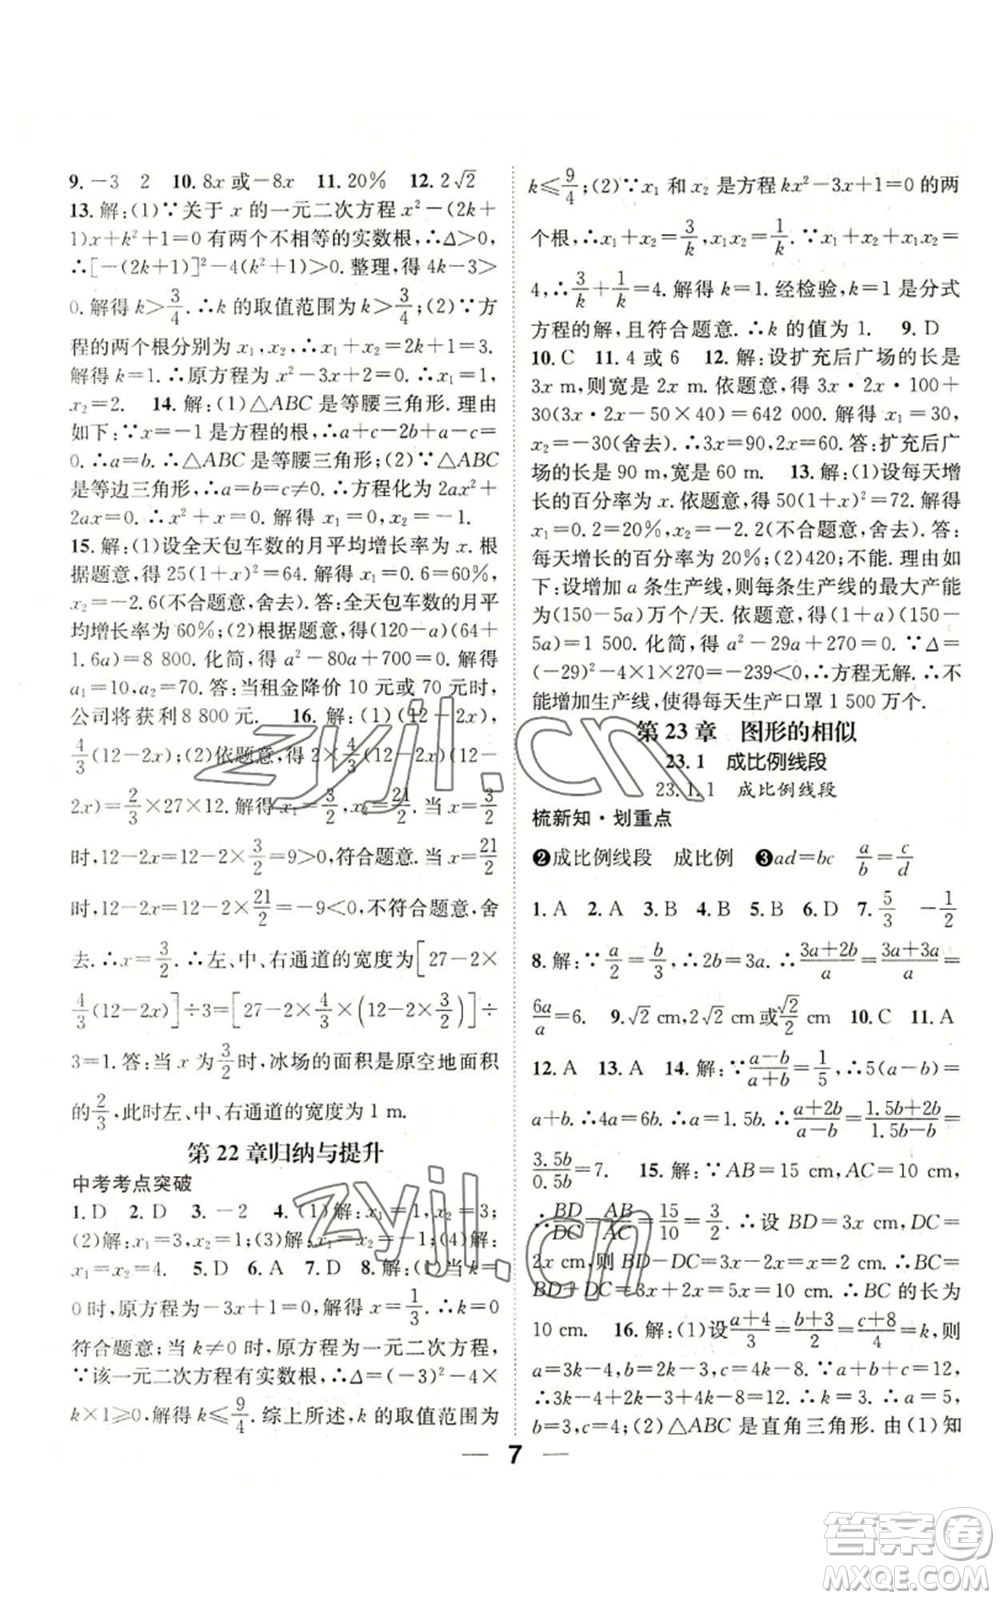 9. －3　2　10. 8x 或－8x　11. 20%　12. 2√2
13. 解：(1)∵关于 x 的一元二次方程 x²－(2k＋
1)x＋k²＋1＝0 有两个不相等的实数根，∴Δ＞0，
∴[－(2k＋1)]²－4(k²＋1)＞0. 整理，得 4k－3＞
0. 解得 k＞3/4. ∴k 的取值范围为 k＞3/4；(2)∵方
程的两个根分别为 x₁，x₂，∴x₁＋x₂＝2k＋1＝3.
解得 k＝1. ∴原方程为 x²－3x＋2＝0. ∴x₁＝1，
x₂＝2.　14. 解：(1)△ABC 是等腰三角形. 理由
如下：∵x＝－1 是方程的根，∴a＋c－2b＋a－c
＝0. ∴a＝b. ∴△ABC 是等腰三角形；(2)∵△ABC
是等边三角形，∴a＝b＝c≠0. ∴方程化为 2ax²＋
2ax＝0. ∴x²＋x＝0. 解得 x₁＝0，x₂＝－1.
15. 解：(1)设全天包车数的月平均增长率为 x. 根
据题意，得 25(1＋x)²＝64. 解得 x₁＝0.6＝60%，
x₂＝－2.6(不合题意，舍去). 答：全天包车数的月平
均增长率为 60%；(2)根据题意，得(120－a)(64＋
1.6a)＝8 800. 化简，得 a²－80a＋700＝0. 解得
a₁＝10，a₂＝70. 答：当租金降价 10 元或 70 元时，
公司将获利 8 800 元.　16. 解：(1)(12－2x)，
4/3(12－2x)；(2)依题意，得 2×4/3x(12－2x)(12－
2x)＝2/3×27×12. 解得 x₁＝3/2，x₂＝21/2. 当 x＝3/2
时，12－2x＝12－2×3/2＝9＞0，符合题意. 当 x＝21/2
时，12－2x＝12－2×21/2＝－9＜0，不符合题意，舍
去. ∴x＝3/2. ∴左、中、右通道的宽度为[27－2×
4/3(12－2x)]÷3＝[27－2×4/3×(12－2×3/2)]÷
3＝1. 答：当 x 为 3/2 时，冰场的面积是原空地面积
的 2/3，此时左、中、右通道的宽度为 1 m.
第 22 章归纳与提升
中考考点突破
1. D　2. D　3. －2　4. (1)解：x₁＝1，x₂＝3；
(2)解：x₁＝3，x₂＝1；(3)解：x₁＝－1，x₂＝4；(4)解：
x₁＝x₂＝4.　5. D　6. A　7. D　8. 解：(1)当 k＝
0 时，原方程为－3x＋1＝0，解得 x＝1/3. ∴k＝0
符合题意；当 k≠0 时，原方程为一元二次方程，
∵该一元二次方程有实数根，∴Δ＝(－3)²－4×
k×1≥0，解得 k≤9/4. 综上所述，k 的取值范围为
k≤9/4；(2)∵x₁ 和 x₂ 是方程 kx²－3x＋1＝0 的两
个根，∴x₁＋x₂＝3/k，x₁x₂＝1/k. ∵x₁＋x₂＋x₁x₂＝
4，∴3/k＋1/k＝4. 解得 k＝1. 经检验，k＝1 是分式
方程的解，且符合题意. ∴k 的值为 1.　9. D
10. C　11. 4 或 6　12. 解：设扩充后广场的长是
3x m，则宽是 2x m. 依题意，得 3x·2x·100＋
30(3x·2x－50×40)＝642 000. 解得 x₁＝30，
x₂＝－30(舍去). ∴3x＝90，2x＝60. 答：扩充后广
场的长是 90 m，宽是 60 m.　13. 解：(1)设每天增
长的百分率为 x. 依题意，得 50(1＋x)²＝72. 解得
x₁＝0.2＝20%，x₂＝－2.2(不合题意，舍去). 答：
每天增长的百分率为 20%；(2)420；不能. 理由如
下：设增加 a 条生产线，则每条生产线的最大产能
为(150－5a)万个/天. 依题意，得(1＋a)(150－
5a)＝1 500. 化简，得 a²－29a＋270＝0. ∵Δ＝
(－29)²－4×1×270＝－239＜0，∴方程无解. ∴不
能增加生产线，使得每天生产口罩 1 500 万个.
第 23 章　图形的相似
23.1　成比例线段
23.1.1　成比例线段
梳新知·划重点
❷成比例线段　成比例　❸ad＝bc　a/b＝c/d
1. A　2. A　3. B　4. B　5. B　6. D　7. 5/3　－1/2
8. 解：∵a/2＝b/3，∴2b＝3a，∴(3a＋2b)/a＝(3a＋3a)/a＝
6a/a＝6.　9. √2 cm，2√2 cm或√2/2 cm　10. C　11. A
12. A　13. A　14. 解：∵(a－b)/(a＋b)＝1/5，∴5(a－b)＝
a＋b. ∴4a＝6b. ∴a＝1.5b. ∴(a＋2b)/(a－b)＝(1.5b＋2b)/(1.5b－b)＝
3.5b/0.5b＝7.　15. 解：∵AB＝15 cm，AC＝10 cm，
∴BD/DC＝AB/AC＝15/10＝3/2. ∴设 BD＝3x cm，DC＝
2x cm，则 BD－DC＝3x－2x＝x＝2 cm. ∴BC＝
BD＋DC＝3x＋2x＝5x＝10 cm. ∴BC 的长为
10 cm.　16. 解：(1)设(a＋4)/3＝(b＋3)/2＝(c＋8)/4＝k，则
a＝3k－4，b＝2k－3，c＝4k－8. ∵a＋b＋c＝12，
∴3k－4＋2k－3＋4k－8＝12. ∴k＝3. ∴a＝5，
b＝3，c＝4；(2)△ABC 是直角三角形. 由(1)知
7
zyjl.cn
zyjl.cn
答案圈
MXQE.COM